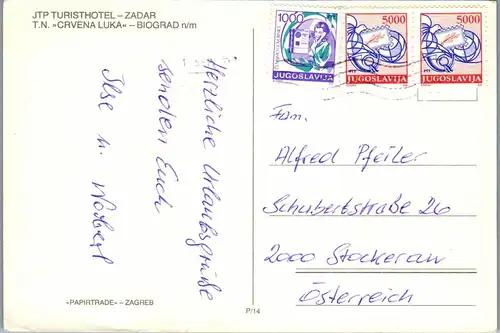 JTP TURISTHOTEL – ZADAR
T.N. »CRVENA LUKA« – BIOGRAD n/m
Herzliche Urlaubsgrüße
senden Euch
Ilse u. Norbert
1000
JUGOSLAVIJA
5000
PTT
JUGOSLAVIJA
5000
PTT
JUGOSLAVIJA
Fam.
Alfred Pfeiler
Schubertstraße 26
2000 Stockerau
Österreich
»PAPIRTRADE« – ZAGREB
P/14